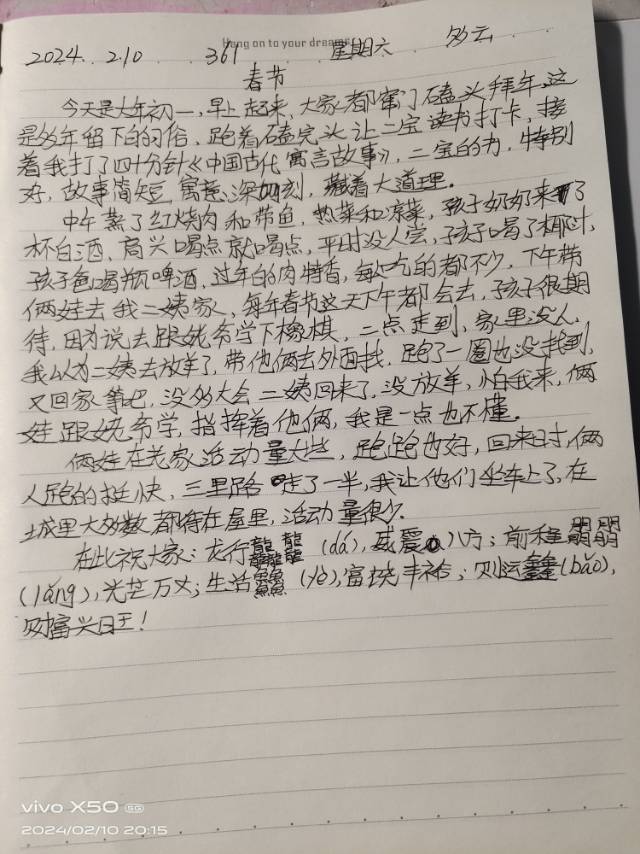 Hang on to your dreams
2024. 2.10 361 星期六 多云
春节
今天是大年初一,早上起来,大家都串门磕头拜年,这
是多年留下的习俗,跑着磕完头让二宝读书打卡,接
着我打了四十分针《中国古代寓言故事》,二宝的力,特别
好,故事简短,寓意深刻,藏着大道理。
中午蒸了红烧肉和带鱼,热菜和凉菜,孩子奶奶来了
杯白酒,高兴喝点就喝点,平时没人尝,孩子喝了椰汁,
孩子爸喝瓶啤酒,过年的肉特香,每吃的都不少,下午带
俩娃去我二姨家,每年春节这天下午都会去,孩子很期
待,因为说去跟姥爷学下橡棋,二点走到,家里没人,
我以为二姨去放羊了,带他俩去外面找,跑了一圈也没找到,
又回家等吧,没多大会二姨回来了,没放羊,怕我来,俩
娃跟姥爷学,指挥着他俩,我是一点也不懂。
俩娃在老家活动量大些,跑跑也好,回来时,俩
人跑的挺快,三里路走了一半,我让他们坐车上了,在
城里大多数都待在屋里,活动量很少。
在此祝大家:龙行龘龘(dá),威震八方;前程朤朤
(lǎng),光芒万丈;生活䲜䲜(yè),富饶丰裕;财运䨻(bǎo),
财富兴旺!
vivo X50 5G
2024/02/10 20:15